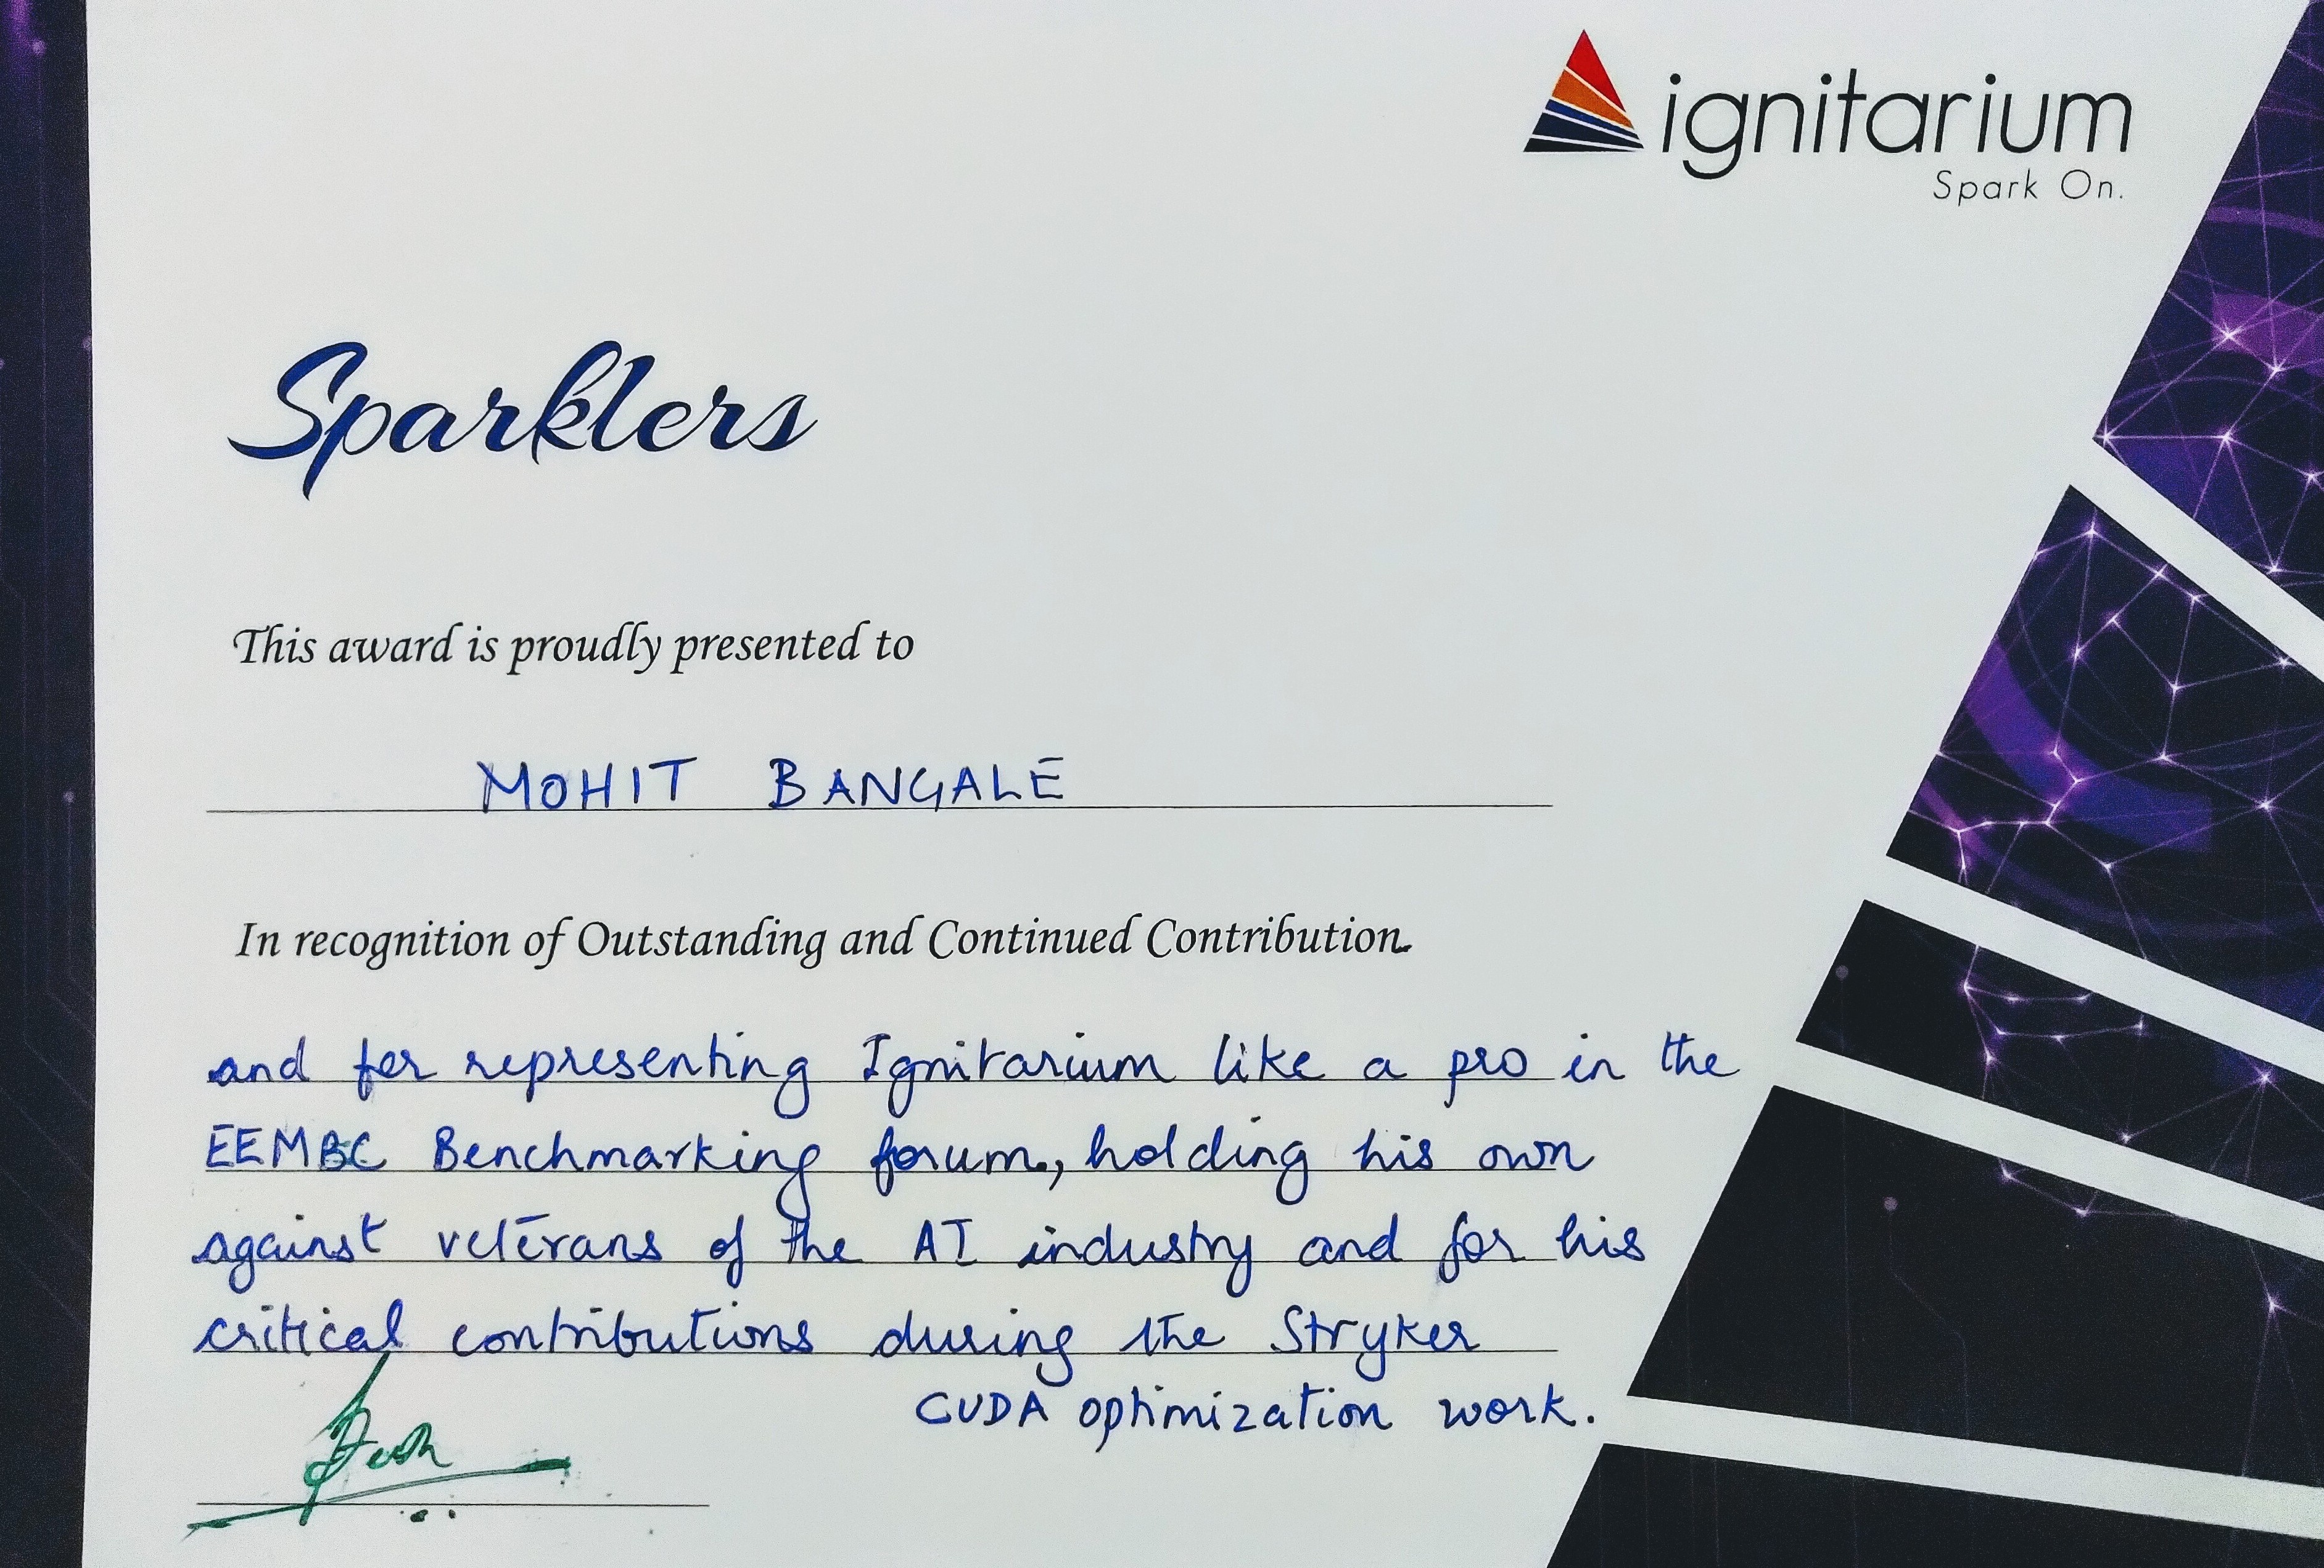 ignitarium
Spark On.
Sparklers
This award is proudly presented to
MOHIT BANGALE
In recognition of Outstanding and Continued Contribution.
and for representing Ignitarium like a pro in the
EEMBC Benchmarking forum, holding his own
against veterans of the AI industry and for his
critical contributions during the Stryker
CUDA optimization work.